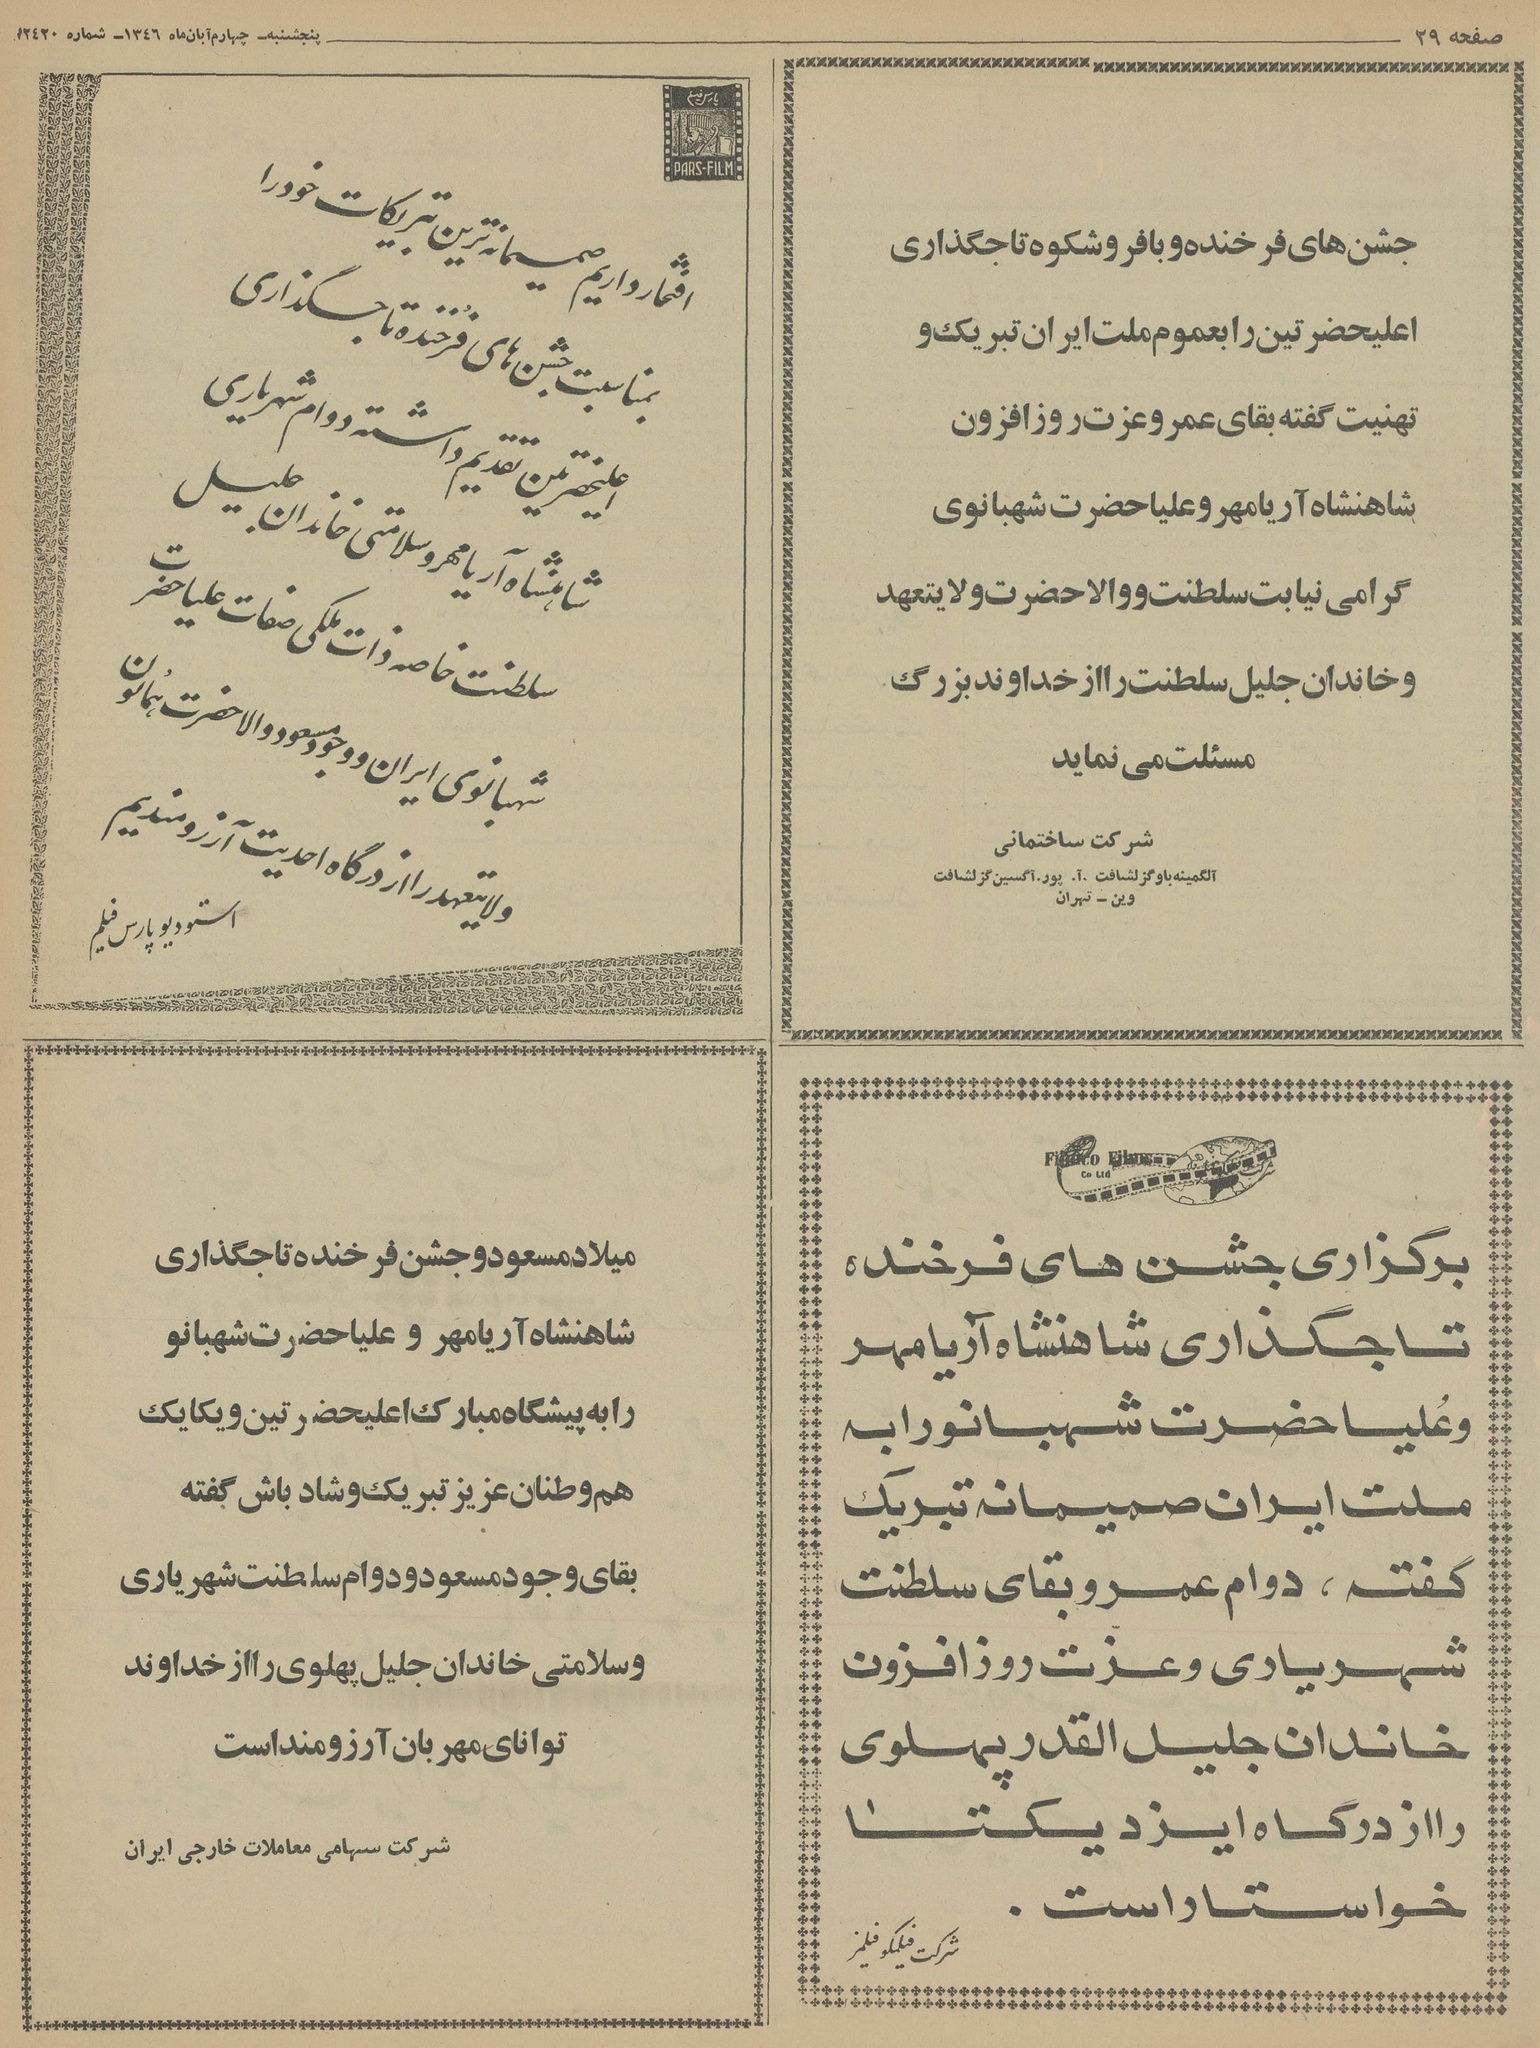 صفحه ۲۹
پنجشنبه_ چهارم آبان ماه ۱۳۴۶_ شماره ۱۲۴۲۰
جشن های فرخنده و با فر و شکوه تاجگذاری
اعلیحضرتین را بعموم ملت ایران تبریک و
تهنیت گفته بقای عمر و عزت روز افزون
شاهنشاه آریامهر و علیاحضرت شهبانوی
گرامی نیابت سلطنت و والاحضرت ولایتعهد
و خاندان جلیل سلطنت را از خداوند بزرگ
مسئلت می نماید
شرکت ساختمانی
آلگمینه باوگزلشافت .آ. پور.آگسین گزلشافت
وین _ تهران
پارس فیلم
PARS-FILM
افتخار داریم صمیمانه ترین تبریکات خود را
بمناسبت جشن های فرخنده تاجگذاری
اعلیحضرتین تقدیم داشته و دوام شهریاری
شاهنشاه آریامهر و سلامتی خاندان جلیل
سلطنت خاصه ذات ملکی صفات علیاحضرت
شهبانوی ایران و وجود مسعود والاحضرت همایون
ولایتعهد را از درگاه احدیت آرزومندیم
استودیو پارس فیلم
Films
Co Ltd
برگزاری جشن های فرخنده
تاجگذاری شاهنشاه آریامهر
و عُلیاحضرت شهبانو را به
ملت ایران صمیمانه تبریک
گفته ، دوام عمر و بقای سلطنت
شهریاری و عزت روز افزون
خاندان جلیل القدر پهلوی
را از درگاه ایزد یکتا
خواستار است .
شرکت فیلمکو فیلمز
میلاد مسعود و جشن فرخنده تاجگذاری
شاهنشاه آریامهر و علیاحضرت شهبانو
را به پیشگاه مبارک اعلیحضرتین و یکایک
هم وطنان عزیز تبریک و شاد باش گفته
بقای وجود مسعود و دوام سلطنت شهریاری
و سلامتی خاندان جلیل پهلوی را از خداوند
توانای مهربان آرزومند است
شرکت سهامی معاملات خارجی ایران